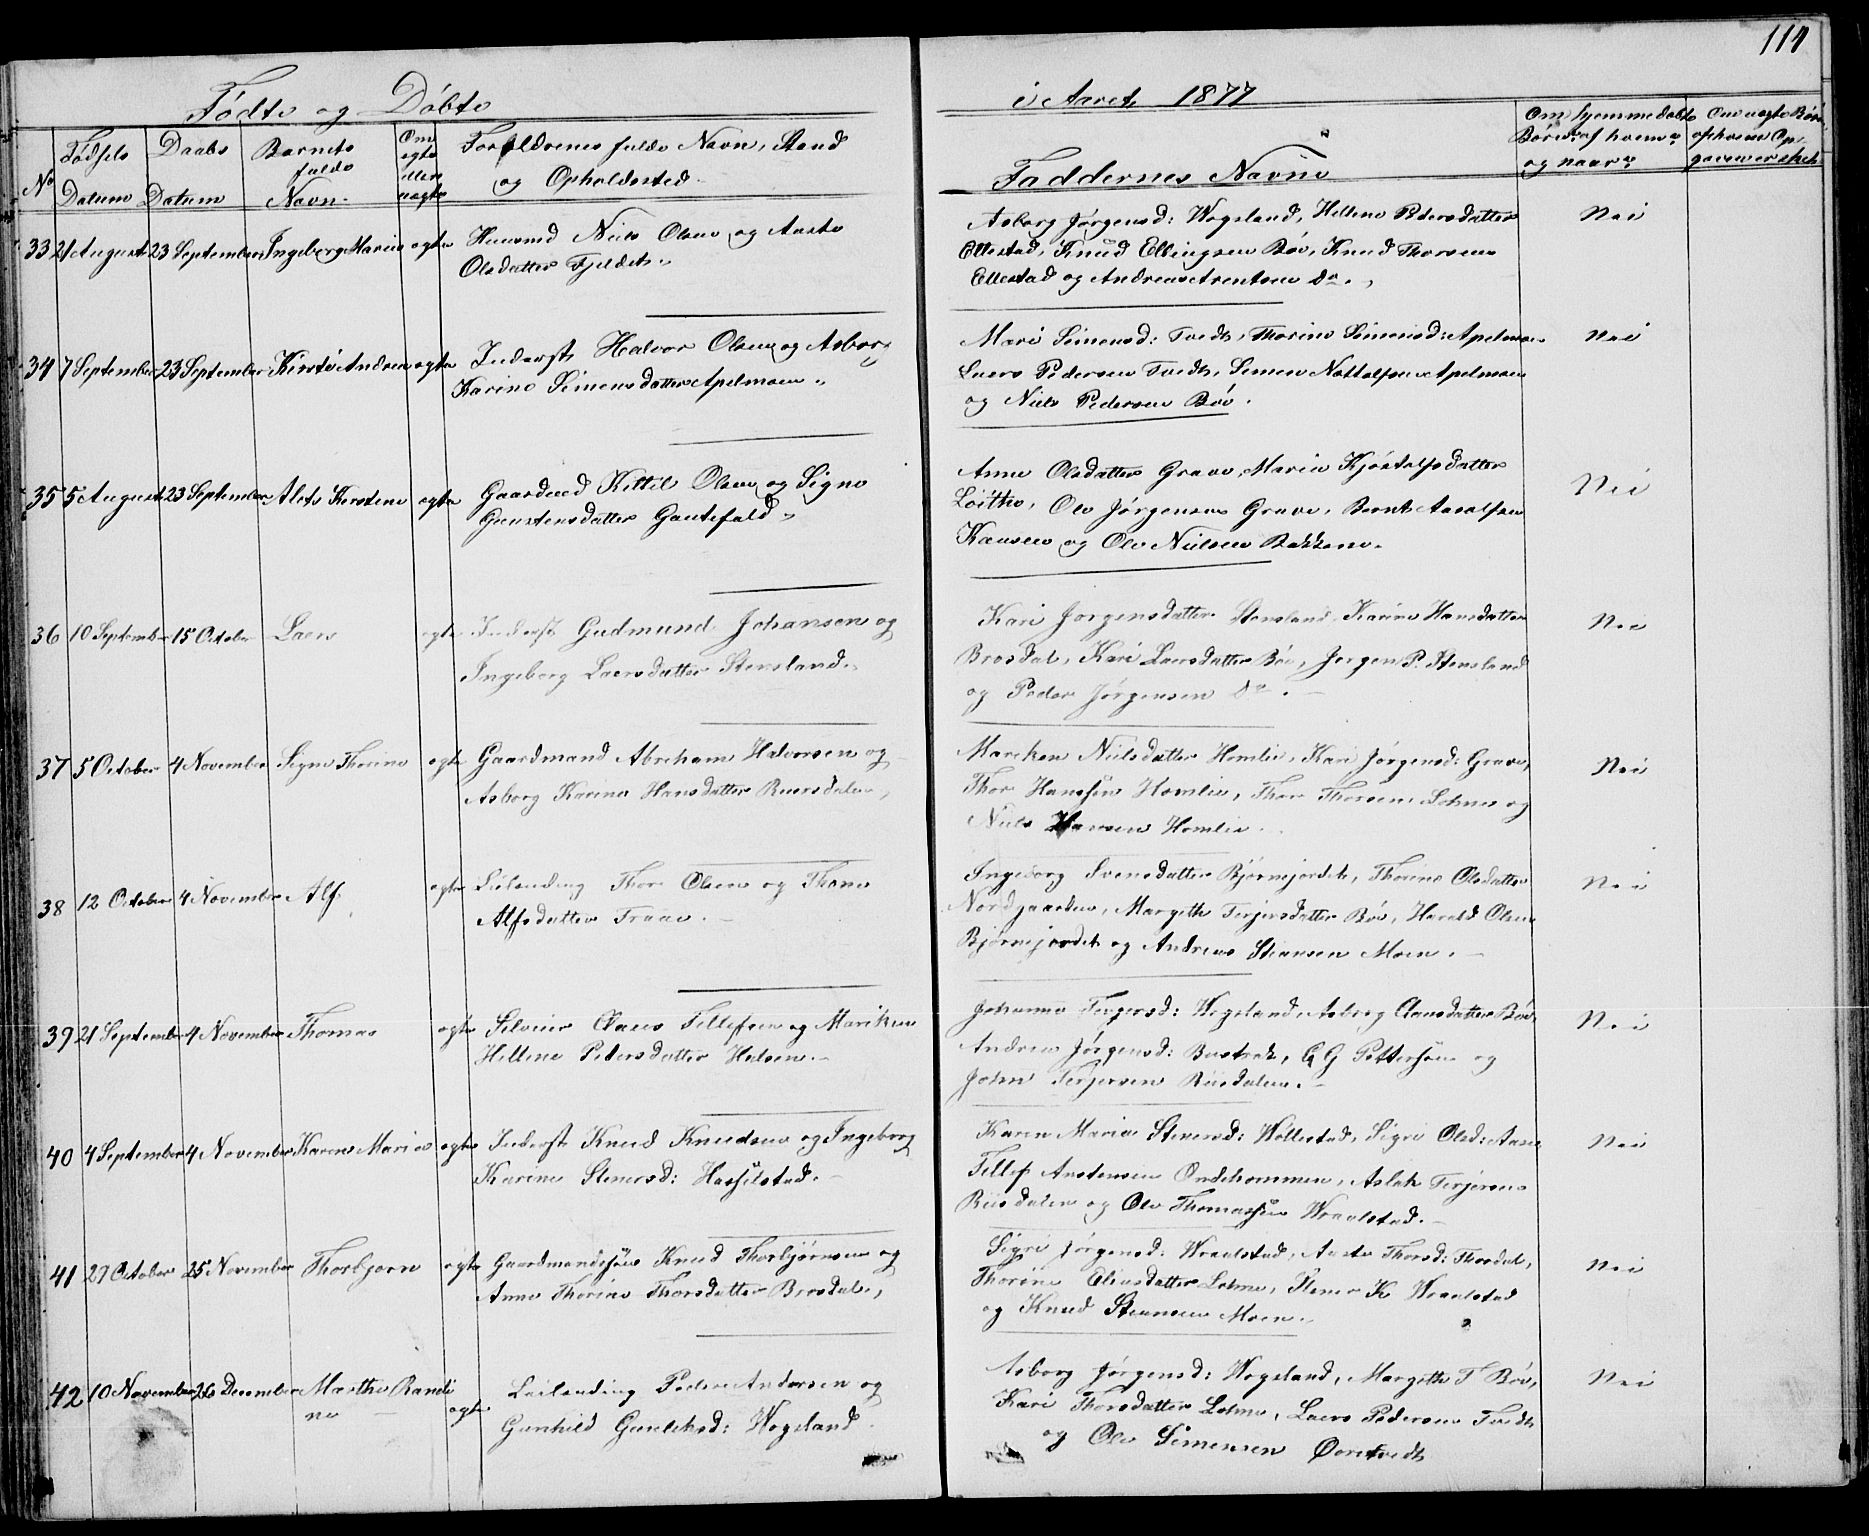 114
Fødte og Døbte i Aaret 1877
No
Fødsels Datum
Daabs Datum
Barnets fulde Navn.
Om ægte eller uægte
Forældrenes fulde Navn, Stand og Opholdssted.
Faddernes Navne
Om hjemmedøbte Børn, af hvem og naar
Om uægte Børn,
33 21 August 23 September Ingeborg Marie ægte Huusmd Niels Olsen og Aaste
Olsdatter Fjeldet.
Asborg Jørgensd: Wogsland, Hellene Pedersdatter
Ellestad, Knud Ellingsen Bøe, Knud Thorsen
Ellestad og Andreas Arentsen do.
Nei
34 7 September 23 September Kirste Andrea ægte Inderst Halvor Olsen og Asborg
Karine Simensdatter Apelmoen
Mari Simensd: Tvedt, Thorine Simensd: Apelmoen
Laers Pedersen Tvedt, Simen Nottolfsen Apelmoen
og Niels Pedersen Bøe.
Nei
35 5 August 23 September Alets Kirstene ægte Gaardmd Kittil Olsen og Signe
Gunstensdatter Gautefald
Anne Olsdatter Grave, Marie Kjøstolfsdatter
Ole Jørgensen Grave, Bernt Aasolfsen
og Ole Nielsen Bakkene.
Nei
36 10 September 15 October Laers ægte Inderst Gudmund Johansen og
Ingeborg Laersdatter Stensland.
Kari Jørgensdatter Stensland, Karine Hansdatter
Brosdal, Kari Laersdatter Bøe, Jørgen P. Stensland
og Peder Jørgensen do.
Nei
37 5 October 4 November Signe Thorine ægte Gaardmand Abraham Halvorsen og
Asborg Karine Hansdatter
Mareken Nielsdatter Homlie, Kari Jørgensd: Grave,
Thor Hanssen Homlie, Thor Thorsen Lohne og
Niels Hansen Homlie.
Nei
38 12 October 4 November Alf ægte Leilending Thor Olsen og Thone
Alfsdatter Traae.
Ingeborg Svensdatter Bjørnejordet, Thorine Olsdatter
Nordgaarden, Margith Terjersdatter Bøe, Harald Olsen
Bjørnejordet og Andreas Stiansen Moen.
Nei
39 21 September 4 November Thomas ægte Selveier Claus Tellefsen og Mariken
Hellene Pedersdatter Halsen.
Johanne Tergersd: Wogsland, Asborg Clausdatter Bøe
Andrea Jørgensd: Bustrak, G G Pettersen og
John Terjersen Riisdalen.
Nei
40 4 September 4 November Karen Maria ægte Inderst Knud Knudsen og Ingeborg
Karine Stenersd: Hasselstad.
Karen Maria Stenersd: Wøllestad, Sigri Olsd: Aase
Tellef Austensen Aslak Terjersen
Riisdalen og Ole Thomassen Wraalstad.
Nei
41 27 October 25 November Thorbjørn ægte Gaardmandssøn Knud Thorbjørnsen og
Anne Thorine Thorsdatter Brosdal,
Sigri Jørgensd: Wraalstad, Aaste Thorsd: Thorsdal,
Thorine Eliasdatter Lohne, Stener K Wraalstad
og Knud Stiansen Moen.
Nei
42 10 November 26 December Marthe Randi
ne ægte Leilending Peder Andersen og
Gunhild Gunleksd: Wogsland
Asborg Jørgensd: Wogsland, Margith T Bøe,
Kari Thorsdatter Lohne, Laers Pedersen Tvedt
og Ole Simensen Ørretvedt
Nei